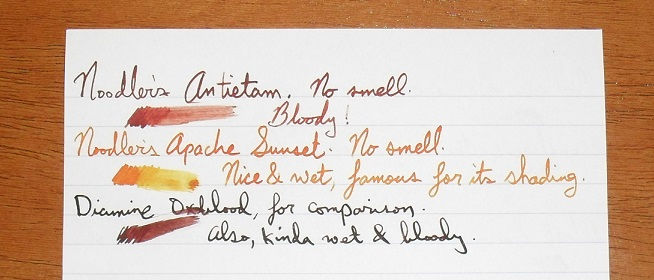 Noodler's Antietam. No smell.
Bloody!
Noodler's Apache Sunset. No smell.
Nice & wet, famous for its shading.
Diamine Oxblood, for comparison.
Also, kinda wet & bloody.